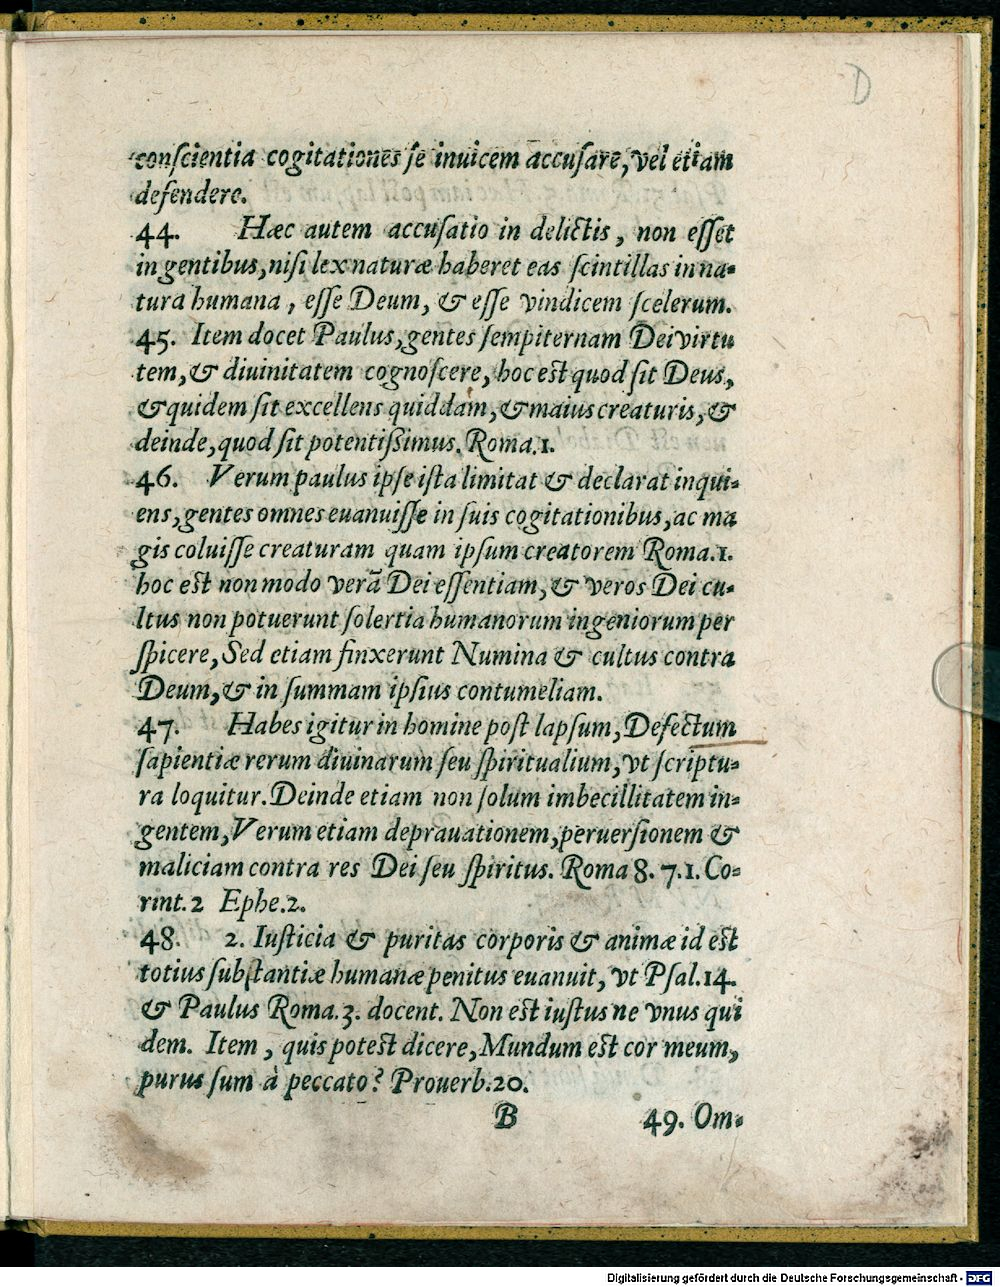 D
conſcientia cogitationes ſe inuicem accuſare, vel etiam
defendere.
44. Hæc autem accuſatio in delictis, non eſſet
in gentibus, niſi lex naturæ haberet eas ſcintillas in na⸗
tura humana, eſſe Deum, & eſſe vindicem ſcelerum.
45. Item docet Paulus, gentes ſempiternam Dei virtu
tem, & diuinitatem cognoſcere, hoc eſt quod ſit Deus,
& quidem ſit excellens quiddam, & maius creaturis, &
deinde, quod ſit potentiſſimus. Roma.1.
46. Verum paulus ipſe iſta limitat & declarat inqui⸗
ens, gentes omnes euanuiſſe in ſuis cogitationibus, ac ma
gis coluiſſe creaturam quam ipſum creatorem Roma.1.
hoc eſt non modo verã Dei eſſentiam, & veros Dei cu⸗
ltus non potuerunt ſolertia humanorum ingeniorum per
ſpicere, Sed etiam finxerunt Numina & cultus contra
Deum, & in ſummam ipſius contumeliam.
47. Habes igitur in homine poſt lapſum, Defectum
ſapientiæ rerum diuinarum ſeu ſpiritualium, vt ſcriptu⸗
ra loquitur. Deinde etiam non ſolum imbecillitatem in⸗
gentem, Verum etiam deprauationem, peruerſionem &
maliciam contra res Dei ſeu ſpiritus. Roma 8. 7. 1. Co⸗
rint. 2 Ephe. 2.
48. 2. Iuſticia & puritas corporis & animæ id eſt
totius ſubſtantiæ humanæ penitus euanuit, vt Pſal. 14.
& Paulus Roma. 3. docent. Non eſt iuſtus ne vnus qui
dem. Item, quis poteſt dicere, Mundum eſt cor meum,
purus ſum à peccato? Prouerb. 20.
B 49. Om⸗
Digitalisierung gefördert durch die Deutsche Forschungsgemeinschaft - DFG